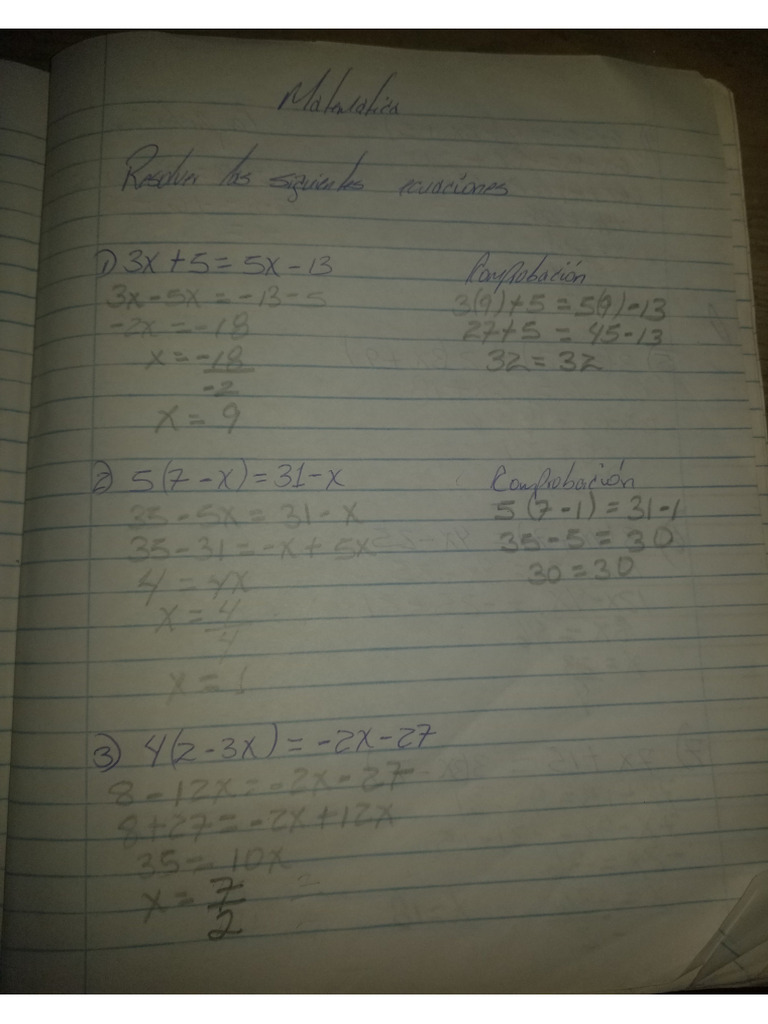 Matematica
Resolver las siguientes ecuaciones
1) 3x + 5 = 5x - 13
3x - 5x = -13 - 5
-2x = -18
x = -18
-2
x = 9
Comprobación
3(9) + 5 = 5(9) - 13
27 + 5 = 45 - 13
32 = 32
2) 5(7 - x) = 31 - x
35 - 5x = 31 - x
35 - 31 = -x + 5x
4 = 4x
x = 4
4
x = 1
Comprobación
5(7 - 1) = 31 - 1
35 - 5 = 30
30 = 30
3) 4(2 - 3x) = -2x - 27
8 - 12x = -2x - 27
8 + 27 = -2x + 12x
35 = 10x
x = 7
2